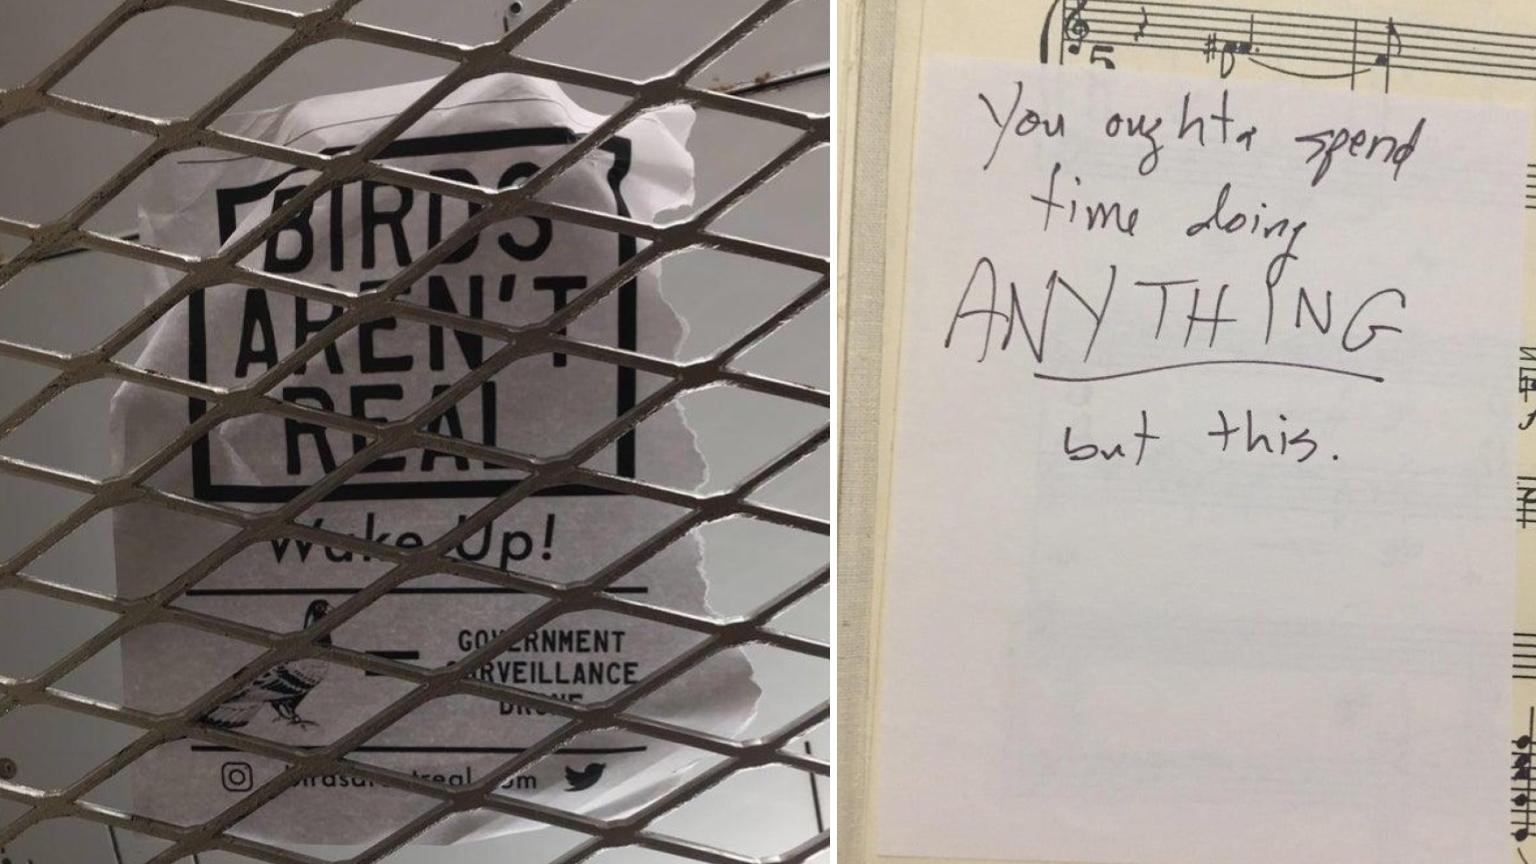 BIRDS
AREN'T
REAL
Wake Up!
GOVERNMENT
SURVEILLANCE
DRONE
birdsarentreal.com
5
You oughta spend
time doing
ANYTHING
but this.